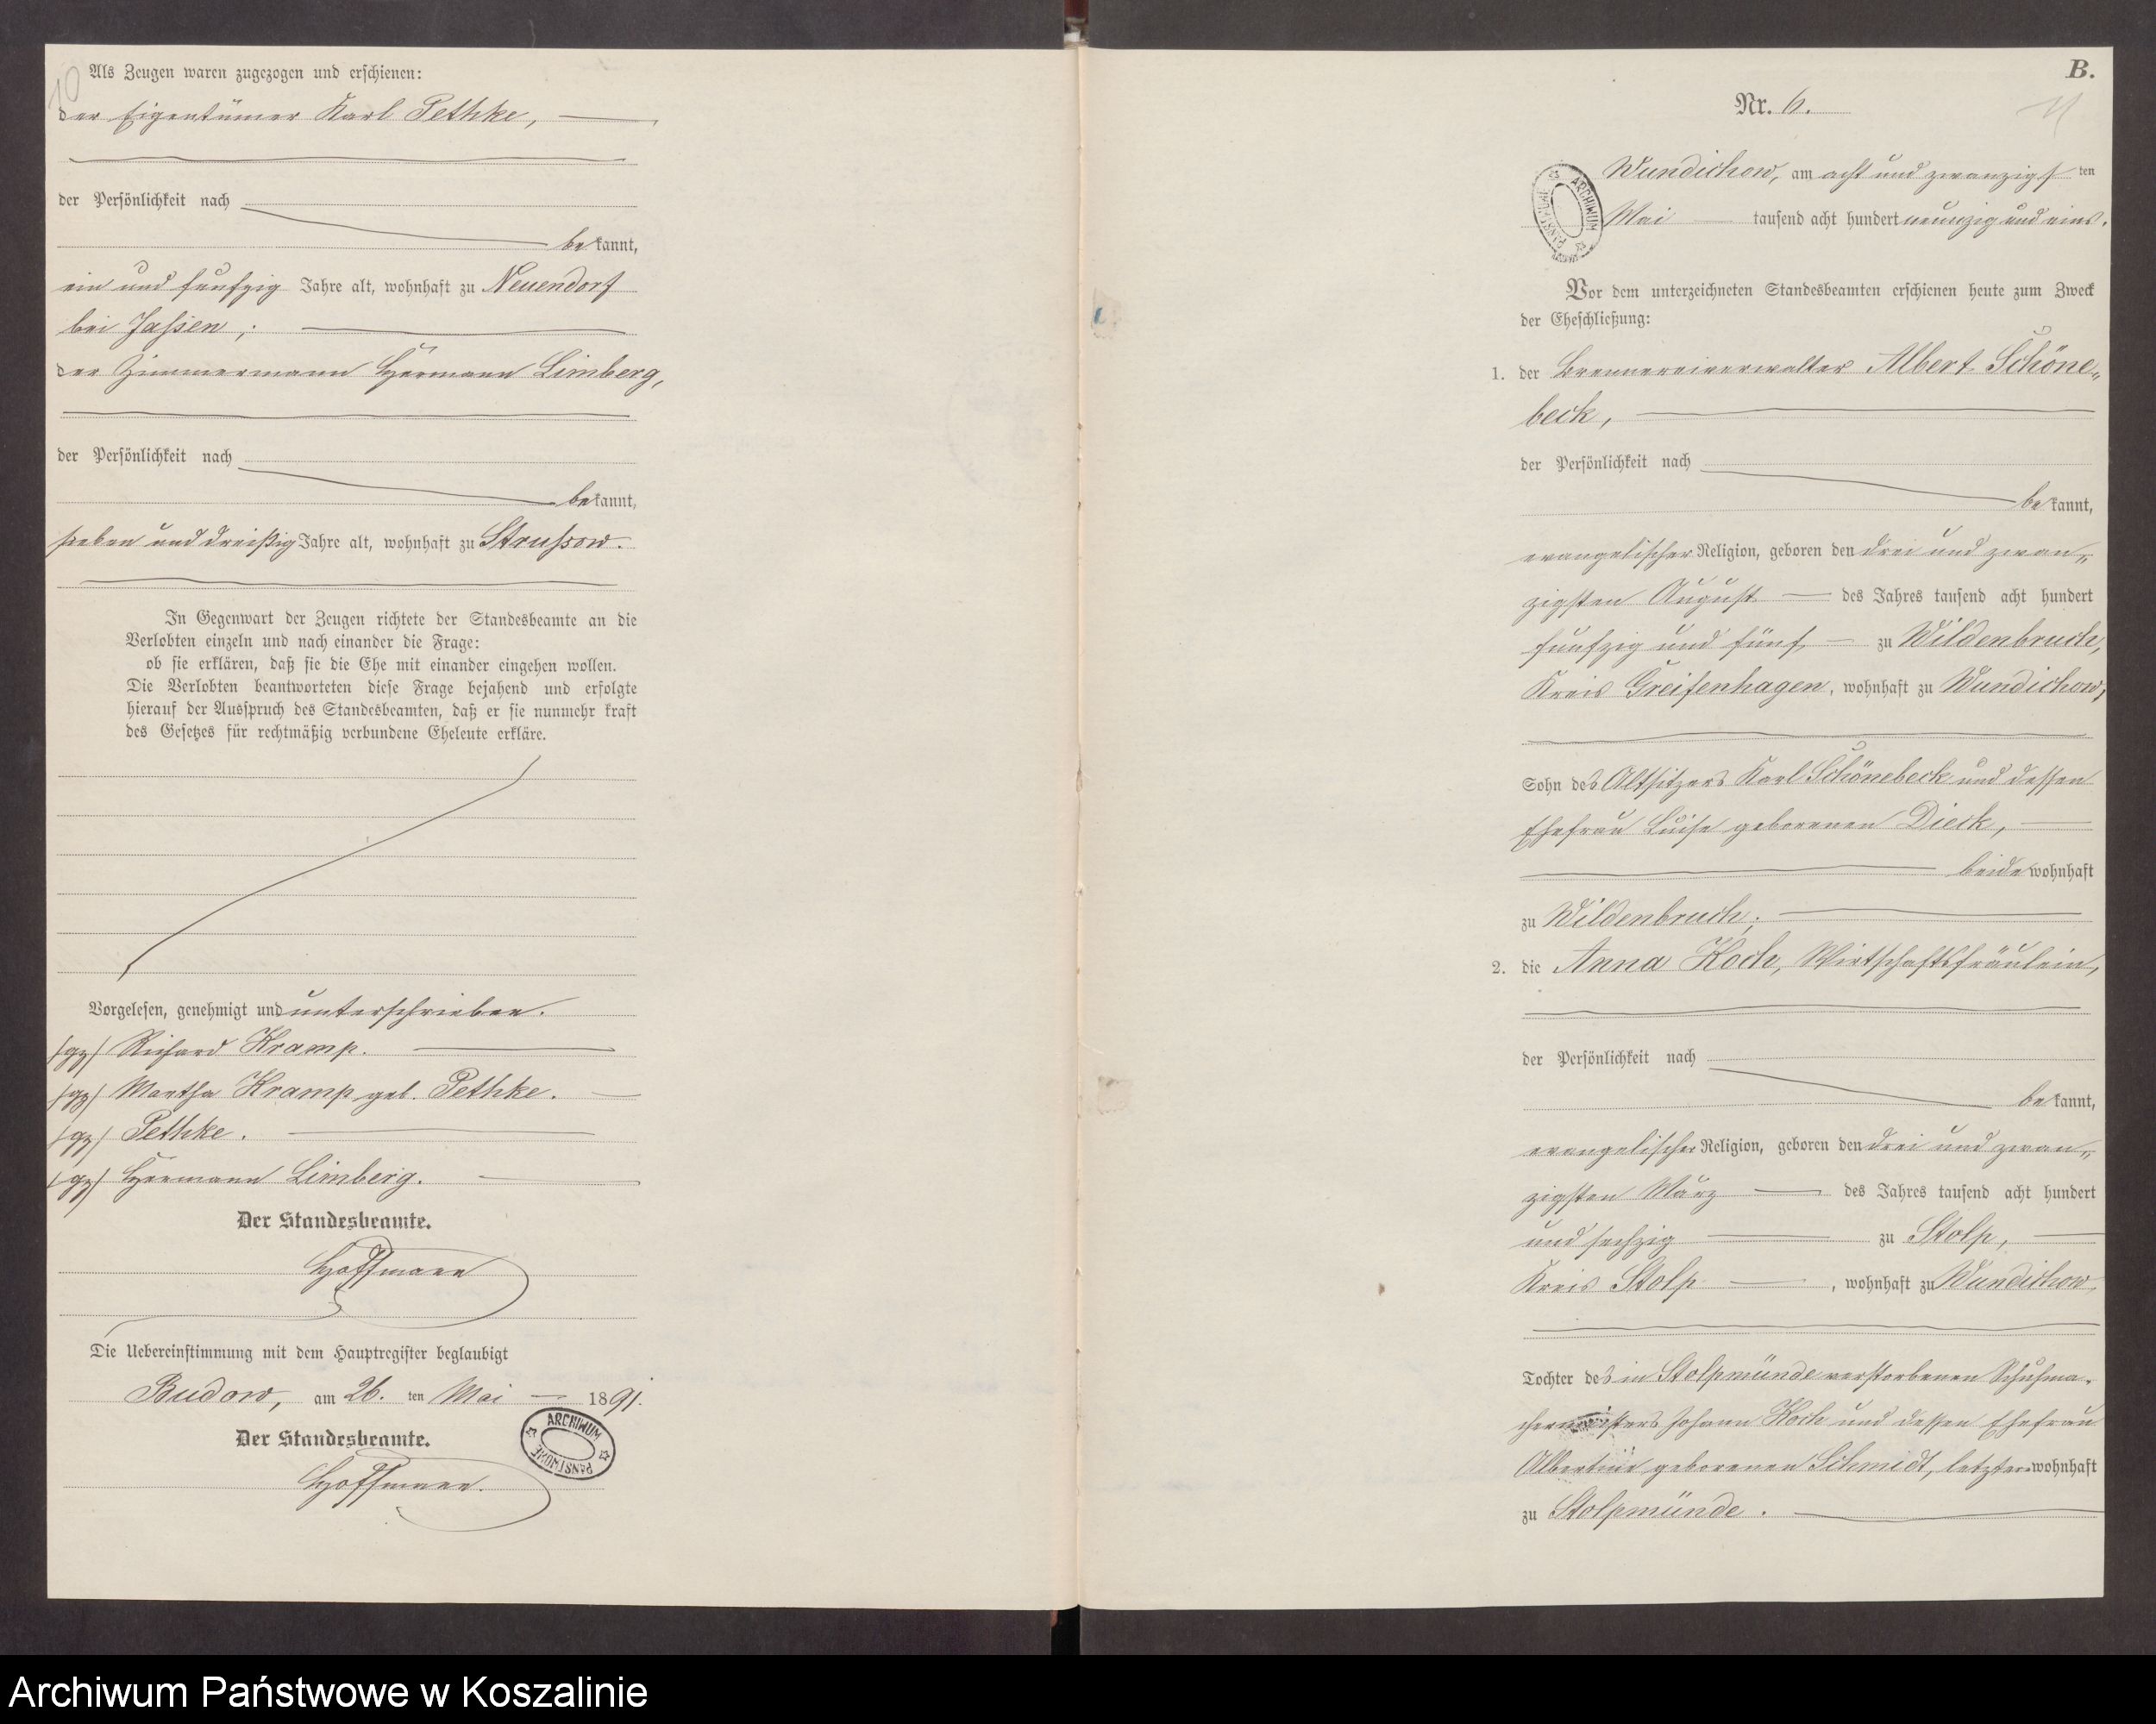 10
Als Zeugen waren zugezogen und erschienen:
der Eigentümer Karl Pethke,
der Persönlichkeit nach
bekannt,
ein und funfzig Jahre alt, wohnhaft zu Neuendorf
bei Jassen;
der Zimmermann Hermann Limberg,
der Persönlichkeit nach
bekannt,
sieben und dreißig Jahre alt, wohnhaft zu Strussow.
In Gegenwart der Zeugen richtete der Standesbeamte an die
Verlobten einzeln und nach einander die Frage:
ob sie erklären, daß sie die Ehe mit einander eingehen wollen.
Die Verlobten beantworteten diese Frage bejahend und erfolgte
hierauf der Ausspruch des Standesbeamten, daß er sie nunmehr kraft
des Gesetzes für rechtmäßig verbundene Eheleute erkläre.
Vorgelesen, genehmigt und unterschrieben.
/gz/ Richard Kramp.
/gz/ Martha Kramp geb. Pethke.
/gz/ Pethke.
/gz/ Hermann Limberg.
Der Standesbeamte.
Hoffmann
Die Uebereinstimmung mit dem Hauptregister beglaubigt
Budow, am 26. ten Mai 1891.
Der Standesbeamte.
Hoffmann.
ARCHIWUM PAŃSTWOWE
B.
Nr. 6.
11
Wundichow, am acht und zwanzigsten
Mai tausend acht hundert neunzig und eins.
ARCHIWUM PAŃSTWOWE
Vor dem unterzeichneten Standesbeamten erschienen heute zum Zweck
der Eheschließung:
1. der Brennereiverwalter Albert Schöne„
beck,
der Persönlichkeit nach
bekannt,
evangelischer Religion, geboren den drei und zwan„
zigsten August des Jahres tausend acht hundert
funfzig und fünf zu Wildenbruch,
Kreis Greifenhagen, wohnhaft zu Wundichow,
Sohn des Altsitzers Karl Schönebeck und dessen
Ehefrau Luise geborenen Dieck,
beide wohnhaft
zu Wildenbruch;
2. die Anna Koch, Wirtschaftsfräulein,
der Persönlichkeit nach
bekannt,
evangelischer Religion, geboren den drei und zwan„
zigsten März des Jahres tausend acht hundert
und sechzig zu Stolp,
Kreis Stolp, wohnhaft zu Wundichow
Tochter des in Stolpmünde verstorbenen Schuhma-
chermeisters Johann Koch und dessen Ehefrau
Albertine geborenen Schmidt, letztere wohnhaft
zu Stolpmünde.
Archiwum Państwowe w Koszalinie